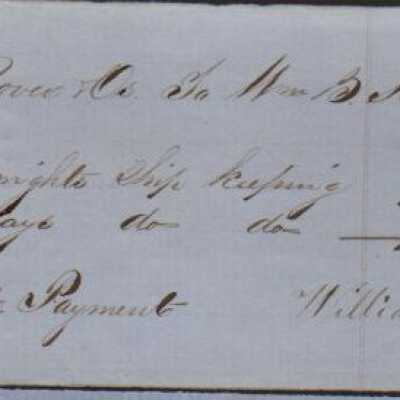 Dr. To Wm B.
nights Ship keeping
days do do
Payment Willia